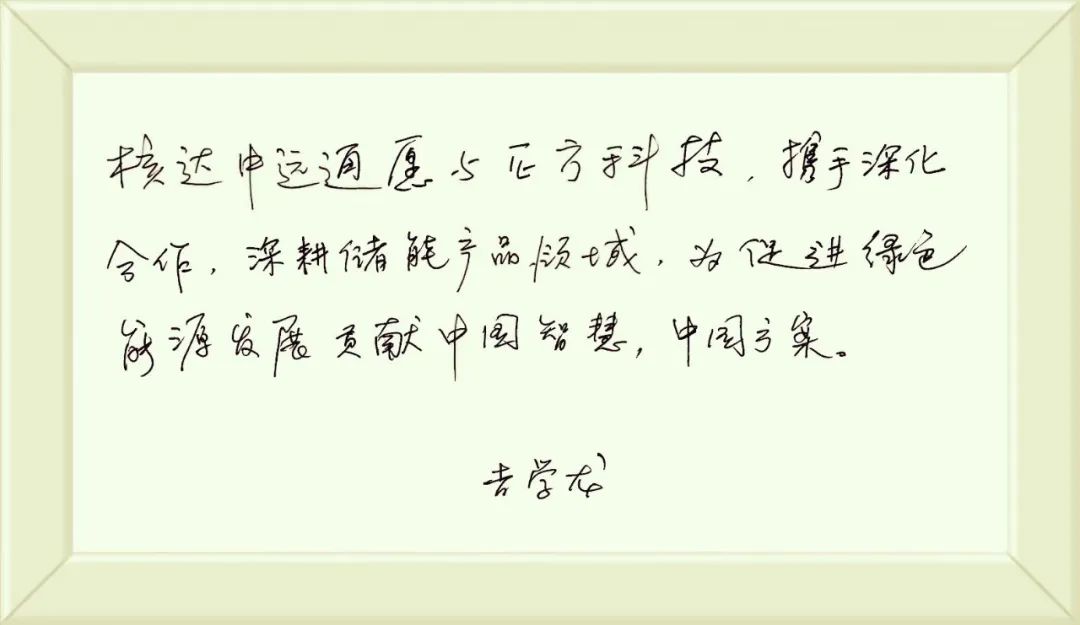 核达中远通愿与正方科技，携手深化
合作，深耕储能产品领域，为促进绿色
能源发展贡献中国智慧，中国方案。
吉学龙